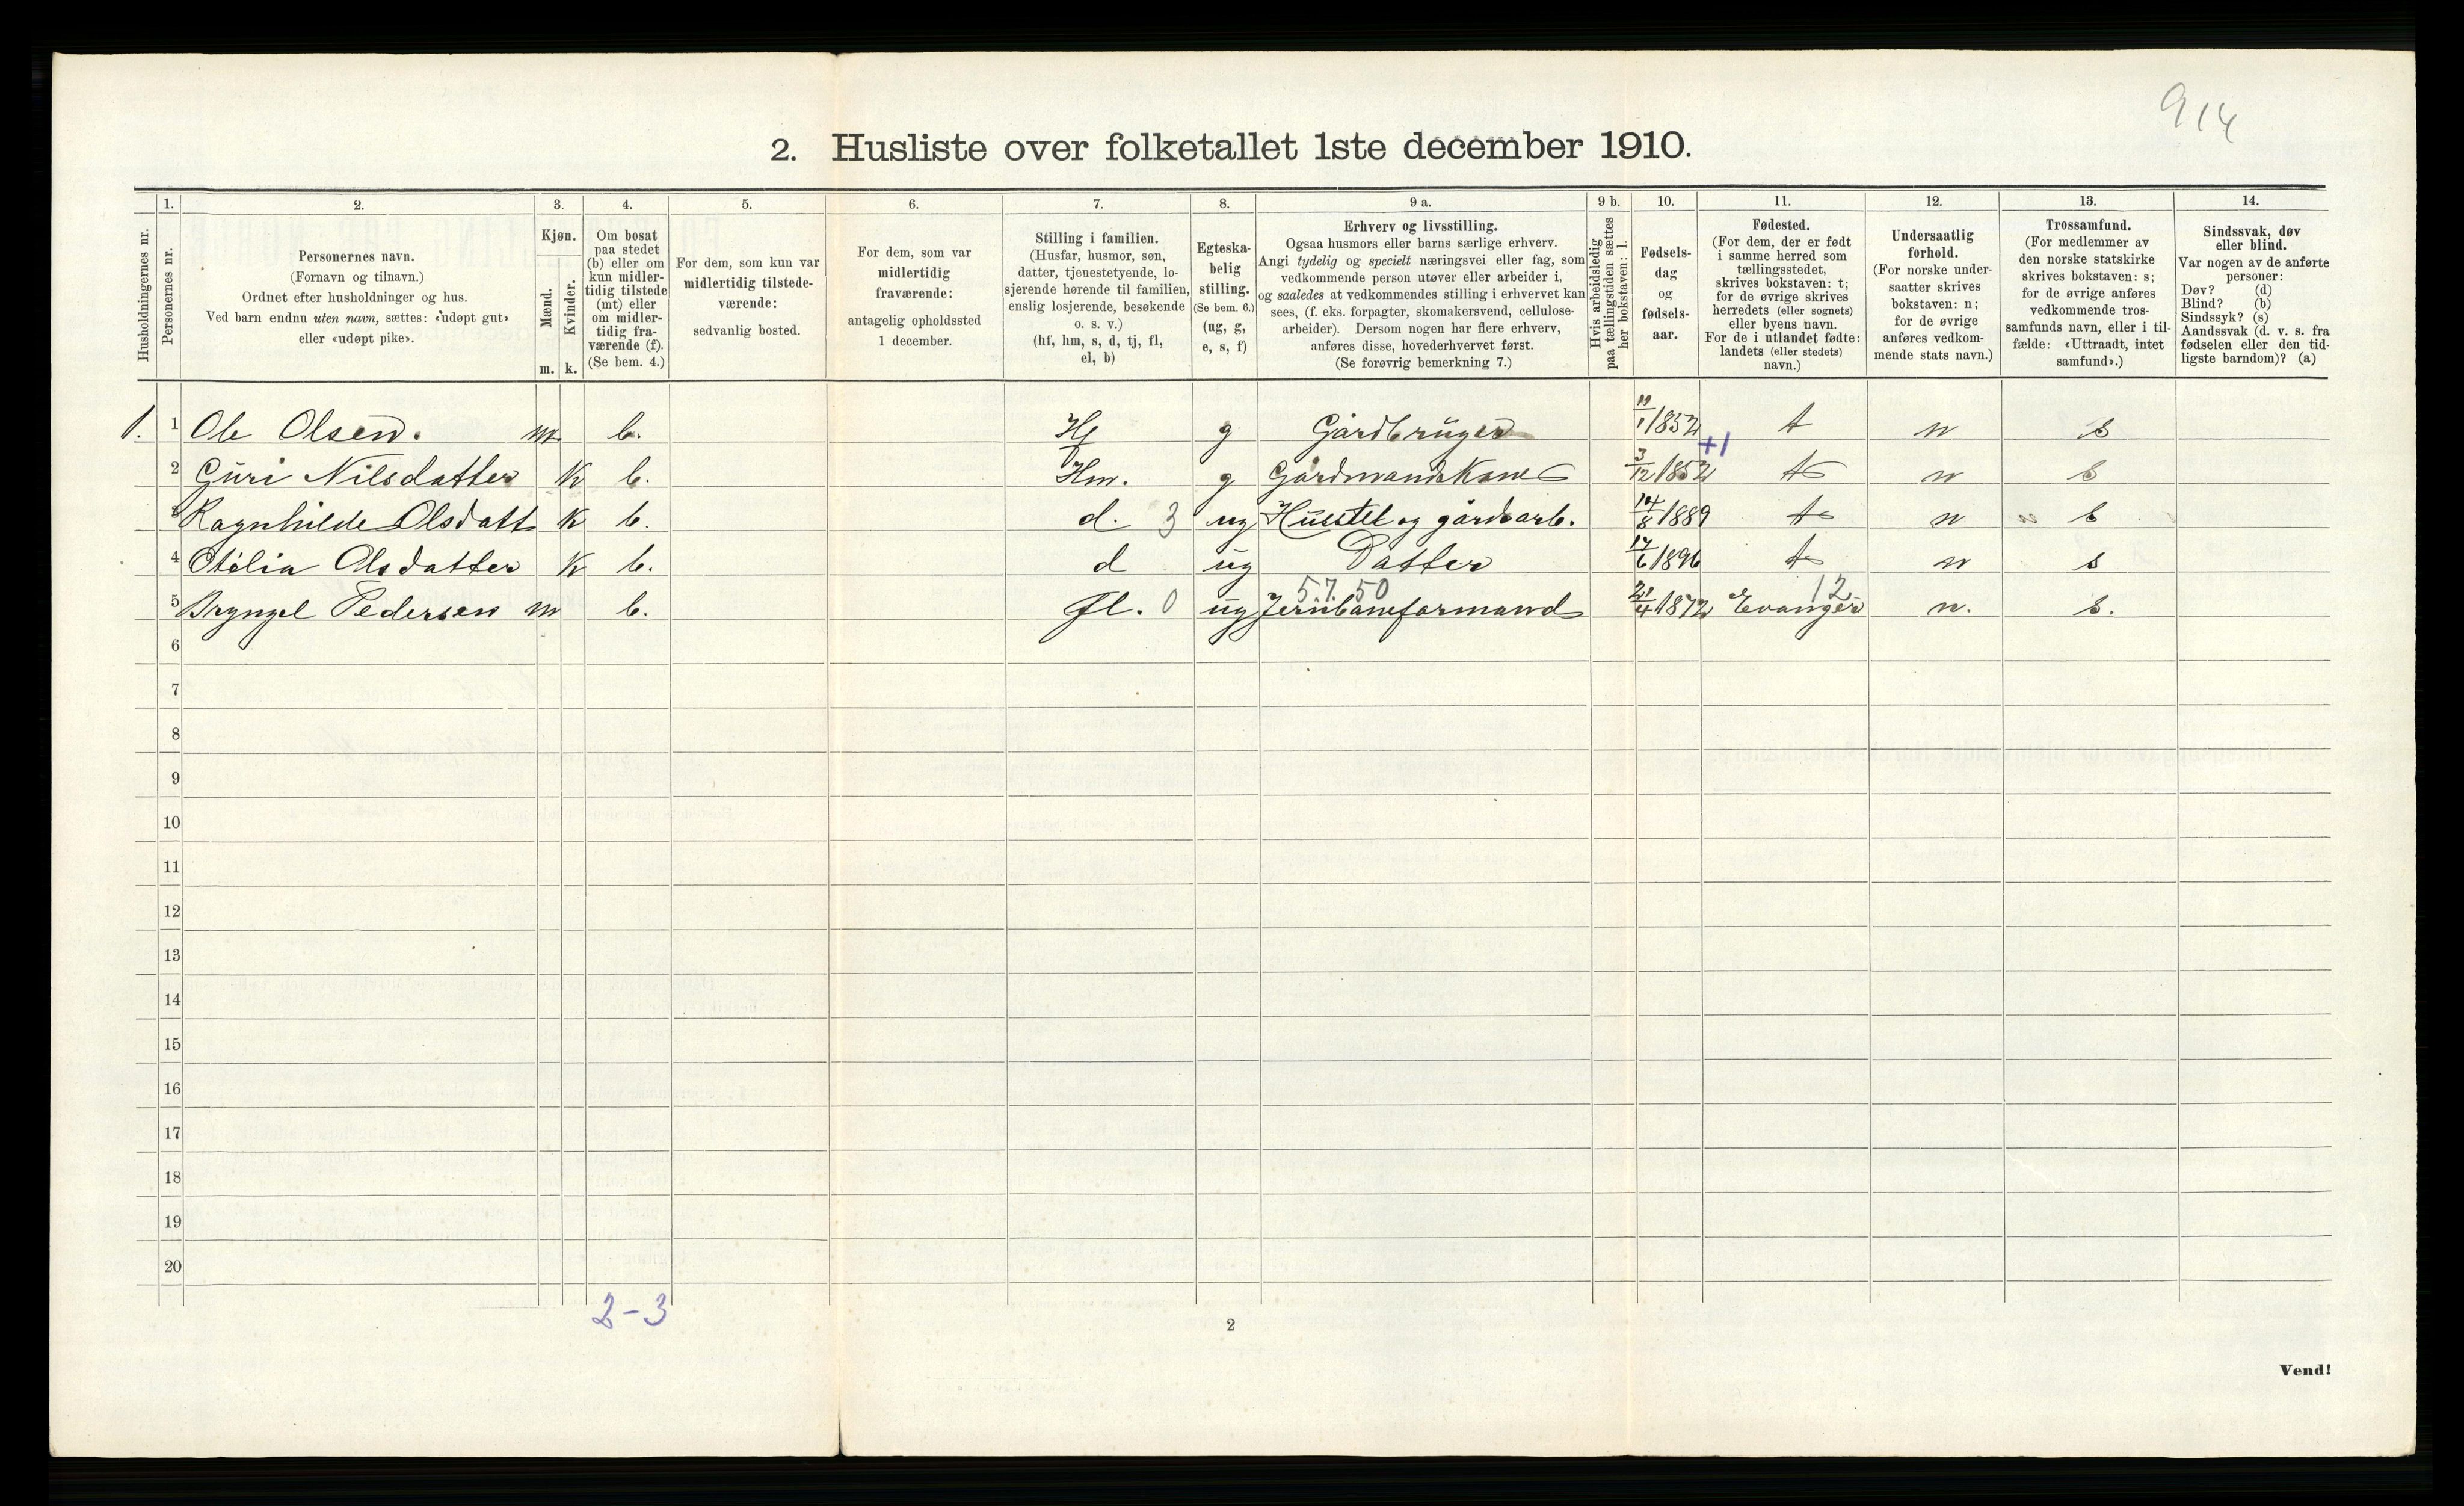 914
2. Husliste over folketallet 1ste december 1910.
Husholdningernes nr.
1.
Personernes nr.
2.
Personernes navn.
(Fornavn og tilnavn.)
Ordnet efter husholdninger og hus.
Ved barn endnu uten navn, sættes: «udøpt gut»
eller «udøpt pike».
3.
Kjøn.
Mænd.
Kvinder.
m. k.
4.
Om bosat
paa stedet
(b) eller om
kun midler-
tidig tilstede
(mt) eller
om midler-
tidig fra-
værende (f).
(Se bem. 4.)
5.
For dem, som kun var
midlertidig tilstede-
værende:
sedvanlig bosted.
6.
For dem, som var
midlertidig
fraværende:
antagelig opholdssted
1 december.
7.
Stilling i familien.
(Husfar, husmor, søn,
datter, tjenestetyende, lo-
sjerende hørende til familien,
enslig losjerende, besøkende
o. s. v.)
(hf, hm, s, d, tj, fl,
el, b)
8.
Egteska-
belig
stilling.
(Se bem. 6.)
(ug, g,
e, s, f)
9 a.
Erhverv og livsstilling.
Ogsaa husmors eller barns særlige erhverv.
Angi tydelig og specielt næringsvei eller fag, som
vedkommende person utøver eller arbeider i,
og saaledes at vedkommendes stilling i erhvervet kan
sees, (f. eks. forpagter, skomakersvend, cellulose-
arbeider). Dersom nogen har flere erhverv,
anføres disse, hovederhvervet først.
(Se forøvrig bemerkning 7.)
9 b.
Hvis arbeidsledig
paa tællingstiden sættes
her bokstaven: l.
10.
Fødsels-
dag
og
fødsels-
aar.
11.
Fødested.
(For dem, der er født
i samme herred som
tællingsstedet,
skrives bokstaven: t;
for de øvrige skrives
herredets (eller sognets)
eller byens navn.
For de i utlandet fødte:
landets (eller stedets)
navn.)
12.
Undersaatlig
forhold.
(For norske under-
saatter skrives
bokstaven: n;
for de øvrige
anføres vedkom-
mende stats navn.)
13.
Trossamfund.
(For medlemmer av
den norske statskirke
skrives bokstaven: s;
for de øvrige anføres
vedkommende tros-
samfunds navn, eller i til-
fælde: «Uttraadt, intet
samfund».)
14.
Sindssvak, døv
eller blind.
Var nogen av de anførte
personer:
Døv? (d)
Blind? (b)
Sindssyk? (s)
Aandssvak (d. v. s. fra
fødselen eller den tid-
ligste barndom)? (a)
1. 1 Ole Olsen. m. b. Hf g Gårdbruger 11/1 1852 t n s
+1
2 Guri Nilsdatter k b. Hm. g Gårdmandskone 3/12 1852 t n s
3 Ragnhilde Olsdatt k b. d. 3 ug Husstel og gårdsarb. 14/8 1889 t n s
4 Otilia Olsdatter k b. d ug Datter 17/6 1896 t n s
57.50 12
5 Bryngel Pedersen m b. fl. 0 ug Jernbaneformand 21/4 1872 Evanger n. s.
6
7
8
9
10
11
12
13
14
15
16
17
18
19
20
2-3
2
Vend!